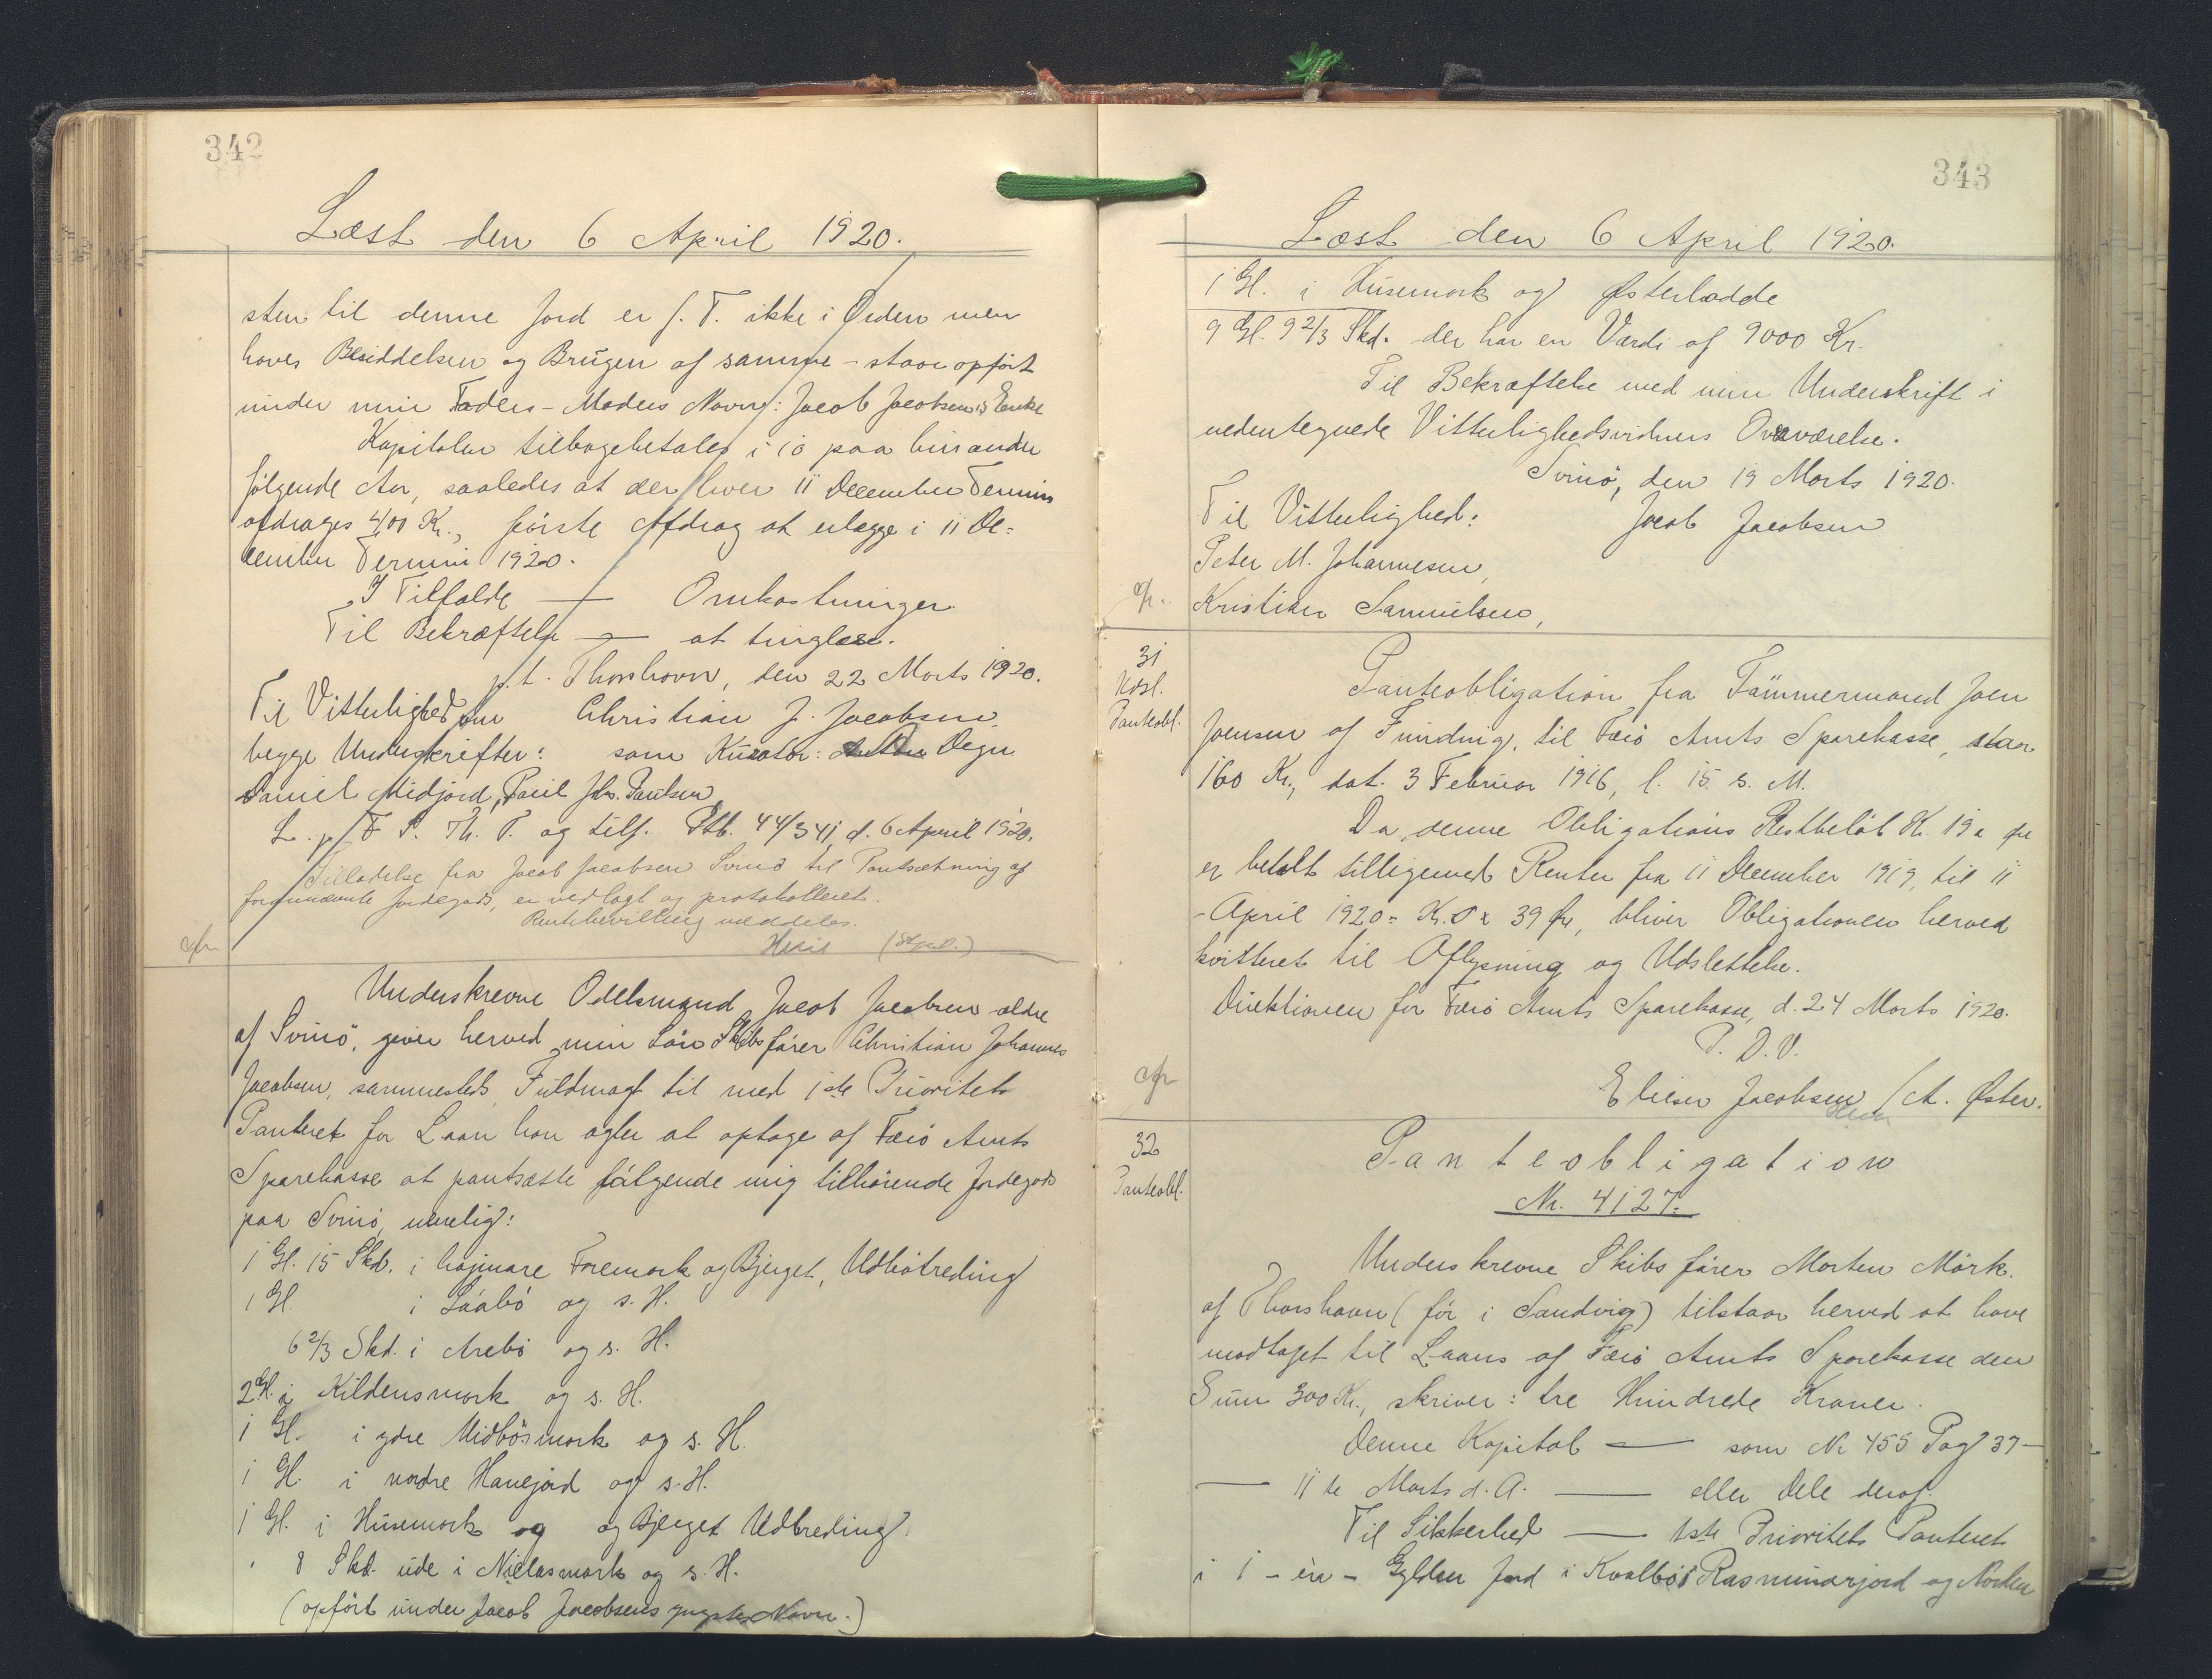 342
Læst den 6 April 1920.
sten til denne Jord er f. T. ikke i Orden men
haves Besiddelsen og Brugen af samme - staar opført
under min Faders-Moders Navn: Jacob Jacobsens Enke
Kapitalen tilbagebetales i 10 paa hinanden
følgende Aar, saaledes at der hver 11 December Termin
afdrages 400 Kr., første Afdrag at erlægge i 11 De=
cember Termin 1920.
I Tilfælde — Omkostninger
Til Bekræftelse — at tinglæse.
p.t. Thorshavn, den 22 Marts 1920.
Til Vitterlighed om Christian J. Jacobsen.
begge Underskrifter: som Kurator: Degn
Daniel Midjord, Poul Joh. Poulsen
L. p. F. S. Th. P. og tilf. Ptb. 44/341, d. 6 April 1920.
Tilladelse fra Jacob Jacobsen Svinø til Pantsætning af
fornævnte Jordegods, er vedlagt og protokolleret.
meddeles.
cfr
Underskrevne Odelsmand Jacob Jacobsen ældre
af Svinö, giver herved min Sön Skibsfører Christian Johannes
Jacobsen, sammesteds, Fuldmagt til med 1ste Prioritets
Panteret for Laan han agter at optage af Færö Amts
Sparekasse at pantsætte følgende mig tilhørende Jordegods
paa Svinö, nemlig:
1 Gl. 15 Skd. i högmare Foremark og Bjerget, Udbötreding
1 Gl. i Láabö og s. H.
6 2/3 Skd. i Arebö og s. H.
2 Gl. i Kildensmark og s. H.
1 Gl. i ydre Midbösmark og s. H.
1 Gl. i nordre Hanejord og s. H.
1 Gl. i Husemark og og Bjerget Udbreding
8 Skd. ude i Niclasmark og s. H.
(opført under Jacob Jacobsens yngstes Navn.)
343
Læst den 6 April 1920.
1 Gl. i Husemark og Østerlædde
9 Gl. 9 2/3 Skd. der har en Værdi af 9000 Kr.
Til Bekræftelse med min Underskrift i
nedentegnede Vitterlighedsvidners Overværelse.
Svinö, den 19 Marts 1920.
Til Vitterlighed: Jacob Jacobsen
Peter M. Johannesen,
cfr. Kristian Samuelsen,
31
Udsl.
Panteobl.
Panteobligation fra Tømmermand Joen
Joensen af Funding, til Færö Amts Sparekasse, stor
160 Kr., dat. 3 Februar 1916, l. 15 s. M.
Da denne Obligations Restbeløb Kr. 19
er betalt tilligemed Renter fra 11 December 1919, til 11
April 1920 = Kr. 0 39 Øre, bliver Obligationen herved
kvitteret til Aflysning og Udslettelse.
Direktionen for Færö Amts Sparekasse, d. 24 Marts 1920.
P. D. V.
cfr
Elieser Jacobsen / A. Øster.
32
Panteobl.
Panteobligation
Nr. 4127.
Underskrevne Skibsfører Morten Mörk.
af Thorshavn (för i Sandvig) tilstaar herved at have
modtaget til Laans af Færö Amts Sparekasse den
Sum 300 Kr., skriver: tre Hundrede Kroner.
Denne Kapital — som Nr 455 Pag 37 —
— 11te Marts d. A. — eller Dele deraf.
Til Sikkerhed — 1ste Prioritets Panteret
i 1 - en - Gylden Jord i Kvalbö i Rasmunarjord og Norden